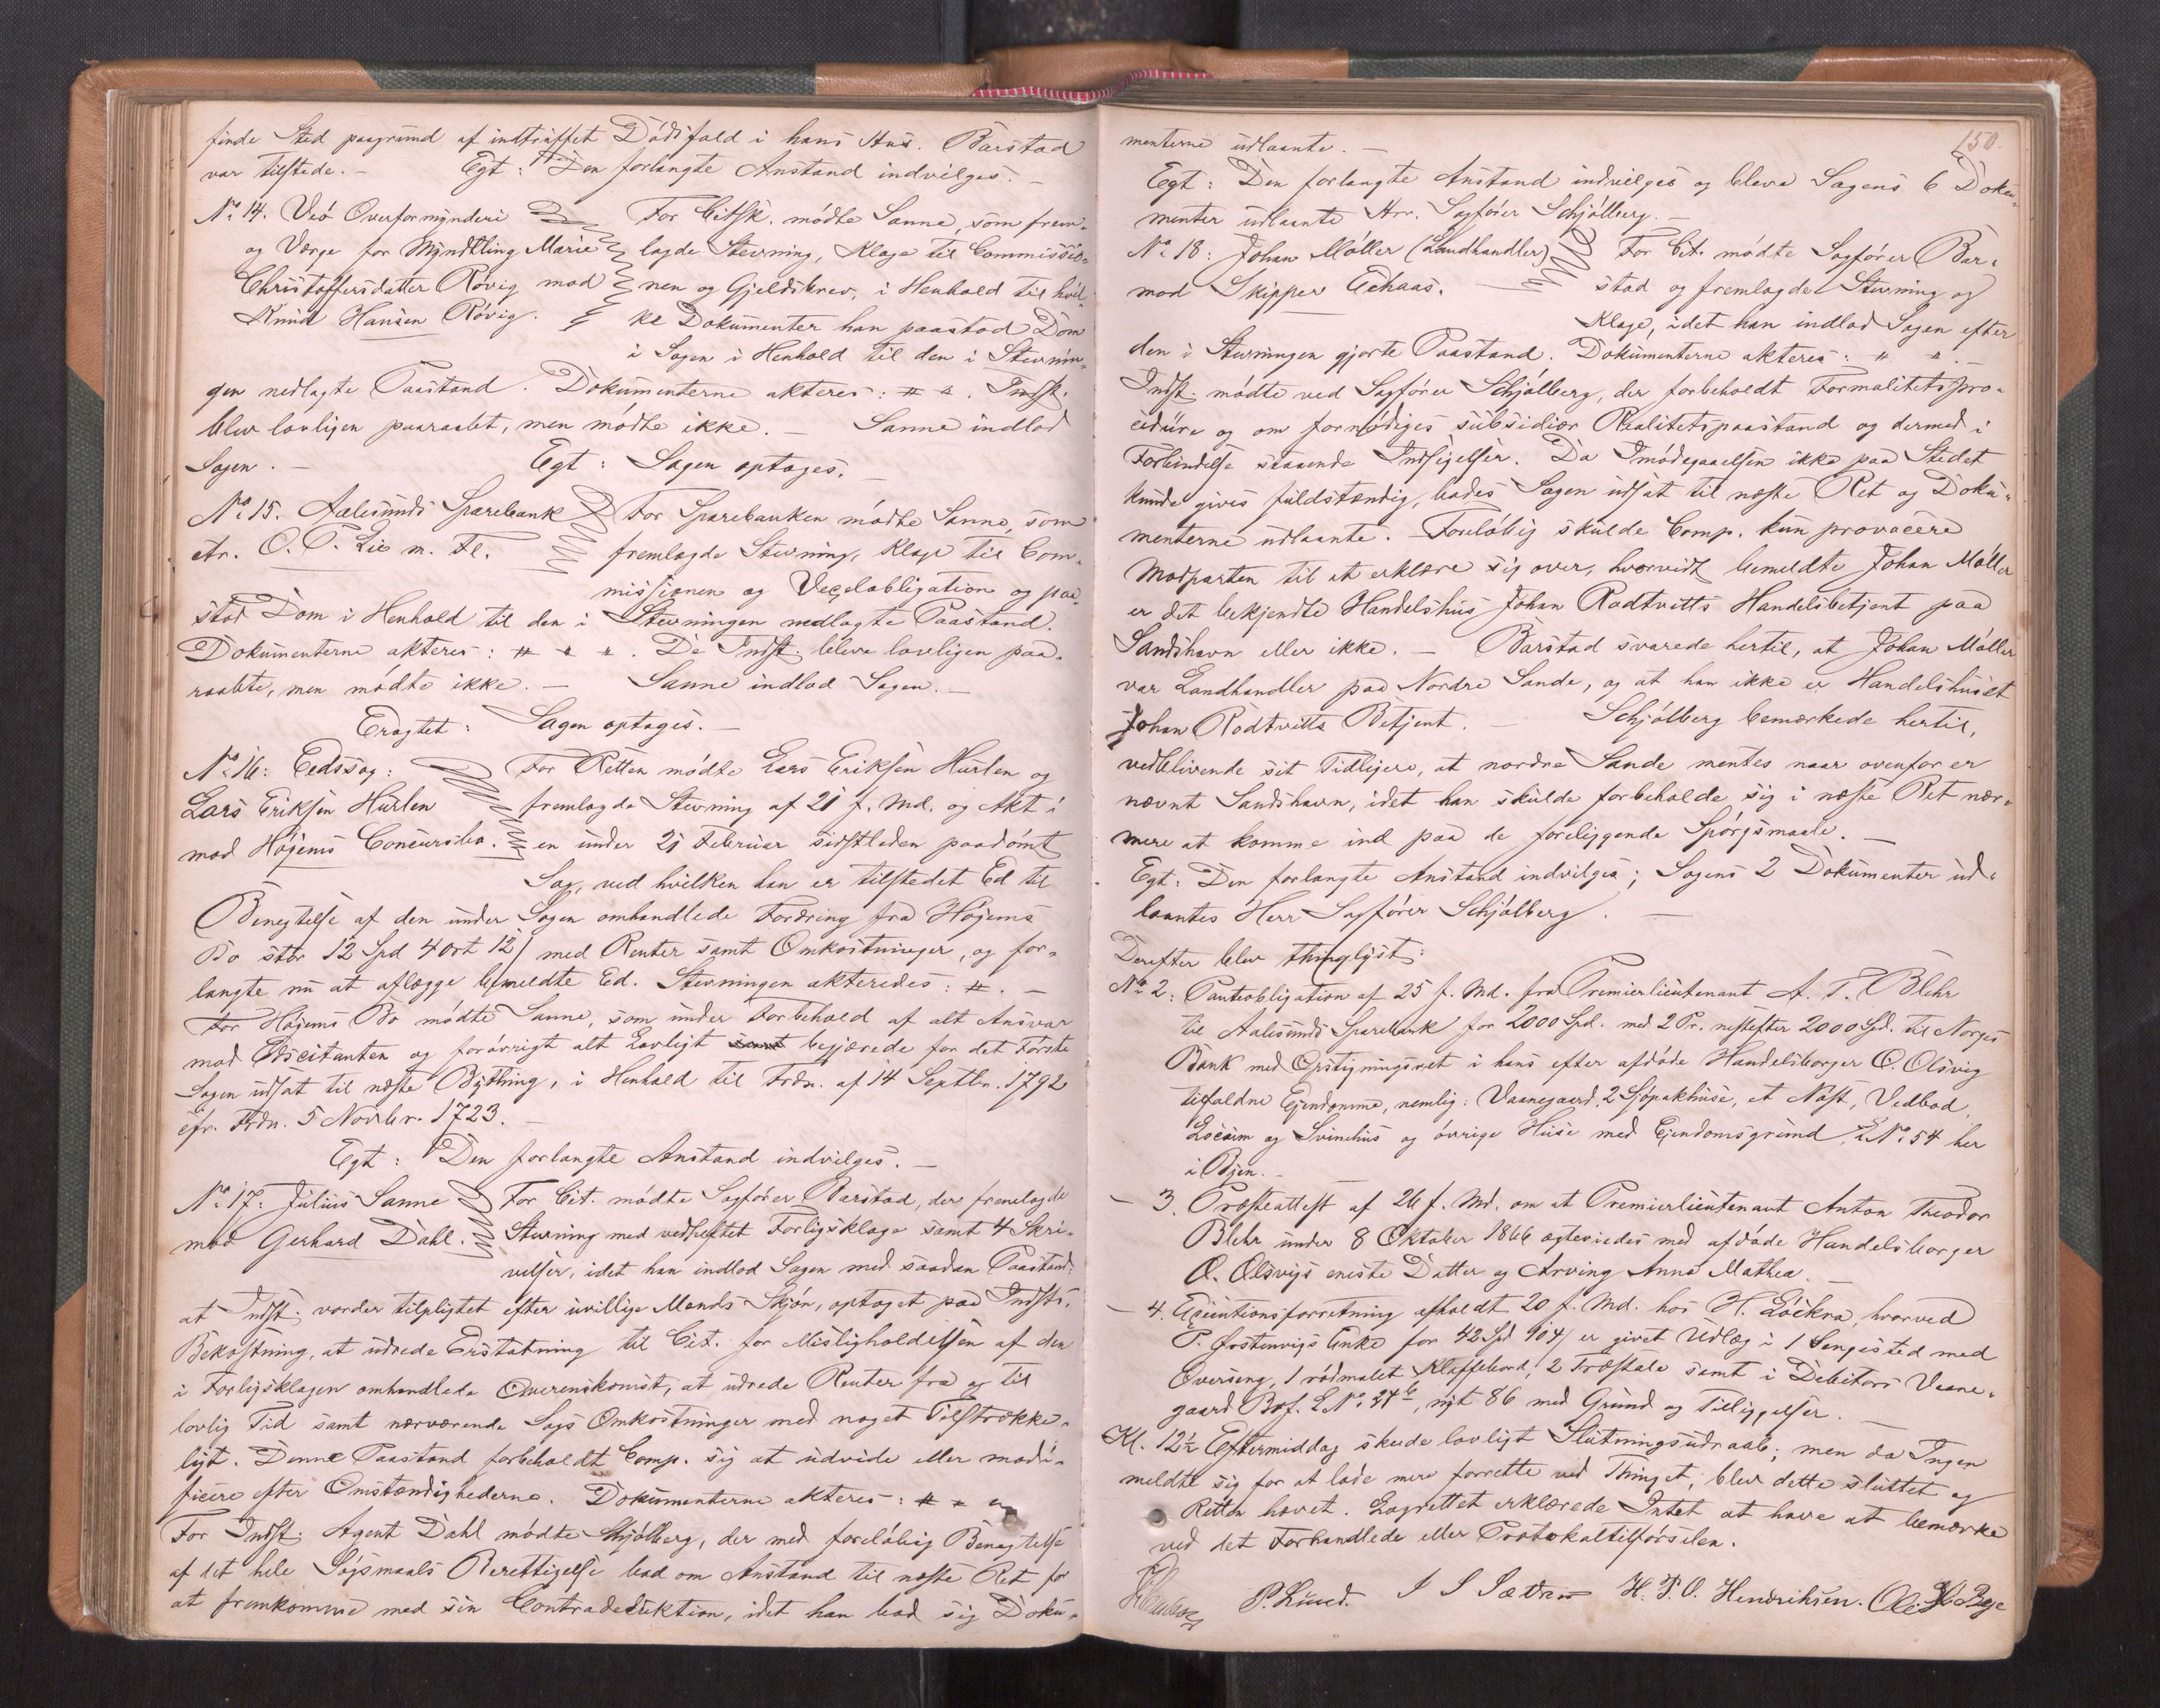 finde Sted paagrund af indtruffet Dödsfald i hans Hus. Barstad
var tilstede. - Egt: Den forlangte Anstand indvilges. -
No 14. Veö Overformynderi
og Værge for Myndtling Marie
Christoffersdatter Rövig mod
Knud Hansen Rövig.
For Citsk. mödte Sanne, som frem-
lagde Stevning, Klage til Commissio-
nen og Gjeldsbrev, i Henhold til hvil-
ke Dokumenter han paastod Dom
i Sagen i Henhold til den i Stevnin-
gen nedlagte Paastand. Dokumenterne akteres: # ". Indst.
blev lovligen paaraabt, men mödte ikke. - Sanne indlod
Sagen. - Egt: Sagen optages. -
No 15. Aalesunds Sparebank
ctr. O. T. Lie m. Fl.
For Sparebanken mödte Sanne, som
fremlagde Stevning, Klage til Com-
missionen og Vexelobligation og paa-
stod Dom i Henhold til den i Stevningen nedlagte Paastand.
Dokumenterne akteres: # " ". De Indst. bleve lovligen paa-
raabte, men mödte ikke. - Sanne indlod Sagen. -
Eragtet: Sagen optages. -
No 16: Eedssag:
Lars Eriksen Hurlen
mod Höjems Concursbo.
For Retten mödte Lars Eriksen Hurlen og
fremlagde Stevning af 21 f. Md. og Akt i
en under 21 Februar sidstleden paadömt
Sag, ved hvilken han er tilstedet Ed til
Benegtelse af den under Sagen omhandlede Fordring fra Höjems
Bo stor 12 Spd 4 Ort 12 / med Renter samt Omkostninger, og for-
langte nu at aflægge bemeldte Ed. Stevningen akteredes: #. -
For Höjems Bo mödte Sanne, som under Forbehold af alt Ansvar
mod Edscitanten og forövrigt alt Lovligt begjærede for det Förste
Sagen udsat til næste Bything, i Henhold til Frdn. af 14 Septbr. 1792
cfr. Frdn. 5 Novbr. 1723. -
Egt: Den forlangte Anstand indvilges. -
No 17: Julius Sanne
mod Gerhard Dahl.
For Cit. mödte Sagförer Barstad, der fremlagde
Stevning med vedheftet Forligsklage samt 4 Skri-
velser, idet han indlod Sagen med saadan Paastand:
at Indst. vorder tilpligtet efter uvillige Mænds Skjön, optaget paa Indsts.
Bekostning, at udrede Erstatning til Cit. for Misligholdelsen af den
i Forligsklagen omhandlede Overenskomst, at udrede Renter fra og til
lovlig Tid samt nærværende Sags Omkostninger med noget Tilstrække-
ligt. Denne Paastand forbeholdt Comp. sig at udvide eller modi-
ficere efter Omstændighederne. Dokumenterne akteres: # " "
For Indst. Agent Dahl mödte Schjölberg, der med forelöbig Benegtelse
af det hele Sögsmaals Berettigelse bad om Anstand til næste Ret for
at fremkomme med sin Contradeduktion, idet han bad sig Doku-
150.
menterne udlaante. -
Egt: Den forlangte Anstand indvilges og bleve Sagens 6 Doku-
menter udlaante Hr. Sagförer Schjölberg. -
No 18: Johan Möller (Landhandler)
mod Skipper Achaas.
For Cit. mödte Sagförer Bar-
stad og fremlagde Stevning og
Klage, idet han indlod Sagen efter
den i Stevningen gjorte Paastand. Dokumenterne akteres: # ". -
Indst. mödte ved Sagförer Schjölberg, der forbeholdt Formalitetspro-
cedure og om fornödiges subsidiær Realitetspaastand og dermed i
Forbindelse staaende Indsigelser. Da Imödegaaelsen ikke paa Stedet
kunde gives fuldstændig, bades Sagen udsat til næste Ret og Doku-
menterne udlaante. Forelöbig skulde Comp. kun provocere
Modparten til at erklære sig over, hvorvidt bemeldte Johan Möller
er det bekjendte Handelshus Johan Rodtvitts Handelsbetjent paa
Sandshavn eller ikke. - Barstad svarede hertil, at Johan Möller
var Landhandler paa Nordre Sande, og at han ikke er Handelshuset
Johan Rodtvitts Betjent. - Schjölberg bemærkede hertil,
vedblivende sit Tidligere, at nordre Sande mentes naar ovenfor er
nævnt Sandshavn, idet han skulde forbeholde sig i næste Ret nær-
mere at komme ind paa de foreliggende Spörgsmaale. -
Egt: Den forlangte Anstand indvilges; Sagens 2 Dokumenter ud-
laantes Herr Sagförer Schjölberg. -
Derefter blev thinglyst:
No 2: Panteobligation af 25 f. Md. fra Premierlieutenant A. T. Blehr
til Aalesunds Sparebank for 2000 Spd. med 2 Pr. nestefter 2000 Spd. til Norges
Bank med Opstigningsret i hans efter afdöde Handelsborger O. Olsvig
tilfaldne Ejendomme, nemlig: Vaanegaard, 2 Sjöpakhuse, et Nöst, Vedbod,
Locum og Svinehus og övrige Huse med Ejendomsgrund LNo 54 her
i Byen. -
- 3. Præsteattest af 26 f. Md. om at Premierlieutenant Anton Theodor
Blehr under 8 Oktober 1866 ægteviedes med afdöde Handelsborger
O. Olsvigs eneste Datter og Arving Anna Mathea. -
- 4. Executionsforretning afholdt 20 f. Md. hos H. Löckra, hvorved
P. Jostenvigs Enke for 42 Spd 104/ er givet Udlæg i 1 Sengested med
Overseng, 1 rödmalet Klaffebord, 2 Træstole samt i Debitors Vaane-
gaard Bof. LNo 24b, nyt 86 med Grund og Tilliggelser. -
Kl. 12½ Eftermiddag skede lovligt Slutningsudraab; men da Ingen
meldte sig for at lade mere forrette ved Thinget, blev dette sluttet og
Retten hævet. Lagrettet erklærede Intet at have at bemærke
ved det Forhandlede eller Protokoltilförselen.
P. Lund. I S Sætren H. P. O. Hendriksen.